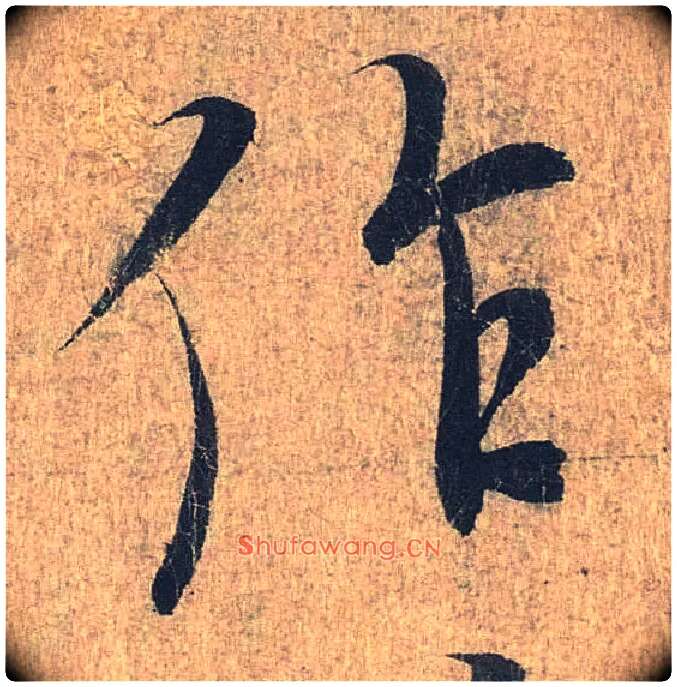 作
Shufawang.CN